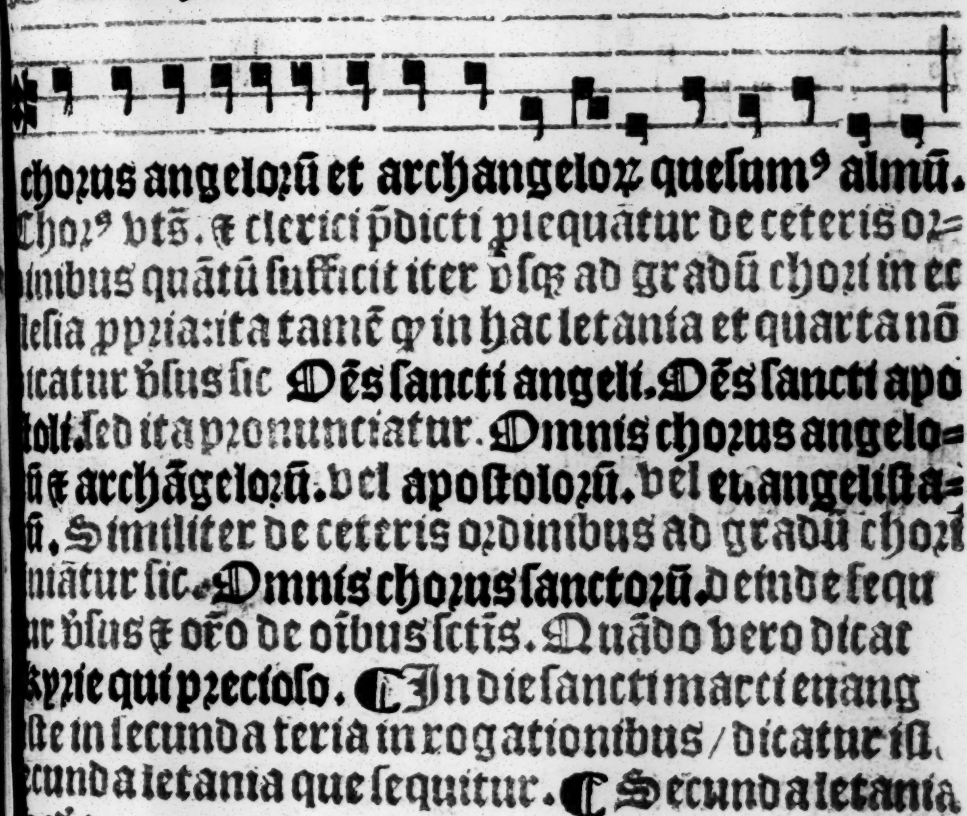 chorus angeloꝝ̃ et archangeloꝝ queſumꝰ almũ.
Chorꝰ vtš. ⁊ clerici p̃dicti ꝓſequãtur de ceteris or⸗
inibus quãtũ ſufficit iter v̉ſqꝫ ad gradũ chori in ec
leſia ꝓpria: ita tamẽ ꝙ in hac letania et quarta nõ
icatur v̉ſus ſic Oẽs ſancti angeli. Oẽs ſancti apo
ſtoli. ſed ita pronunciatur. Omnis chorus angelo⸗
rũ ⁊ archãgelorũ. vel apoſtolorũ. vel euangeliſta⸗
rũ. Similiter de ceteris ordinibus ad gradũ chori
niãtur ſic. Omnis chorus ſanctorũ. deinde ſequ
ur v̉ſus ⁊ or̃o de oĩbus ſctĩs. Quãdo vero dicat
kyrie qui precioſo. ¶ In die ſancti marci euang
iſte in ſecunda feria in rogationibus / dicatur iſt
ecunda letania que ſequitur. ¶ Secunda letania